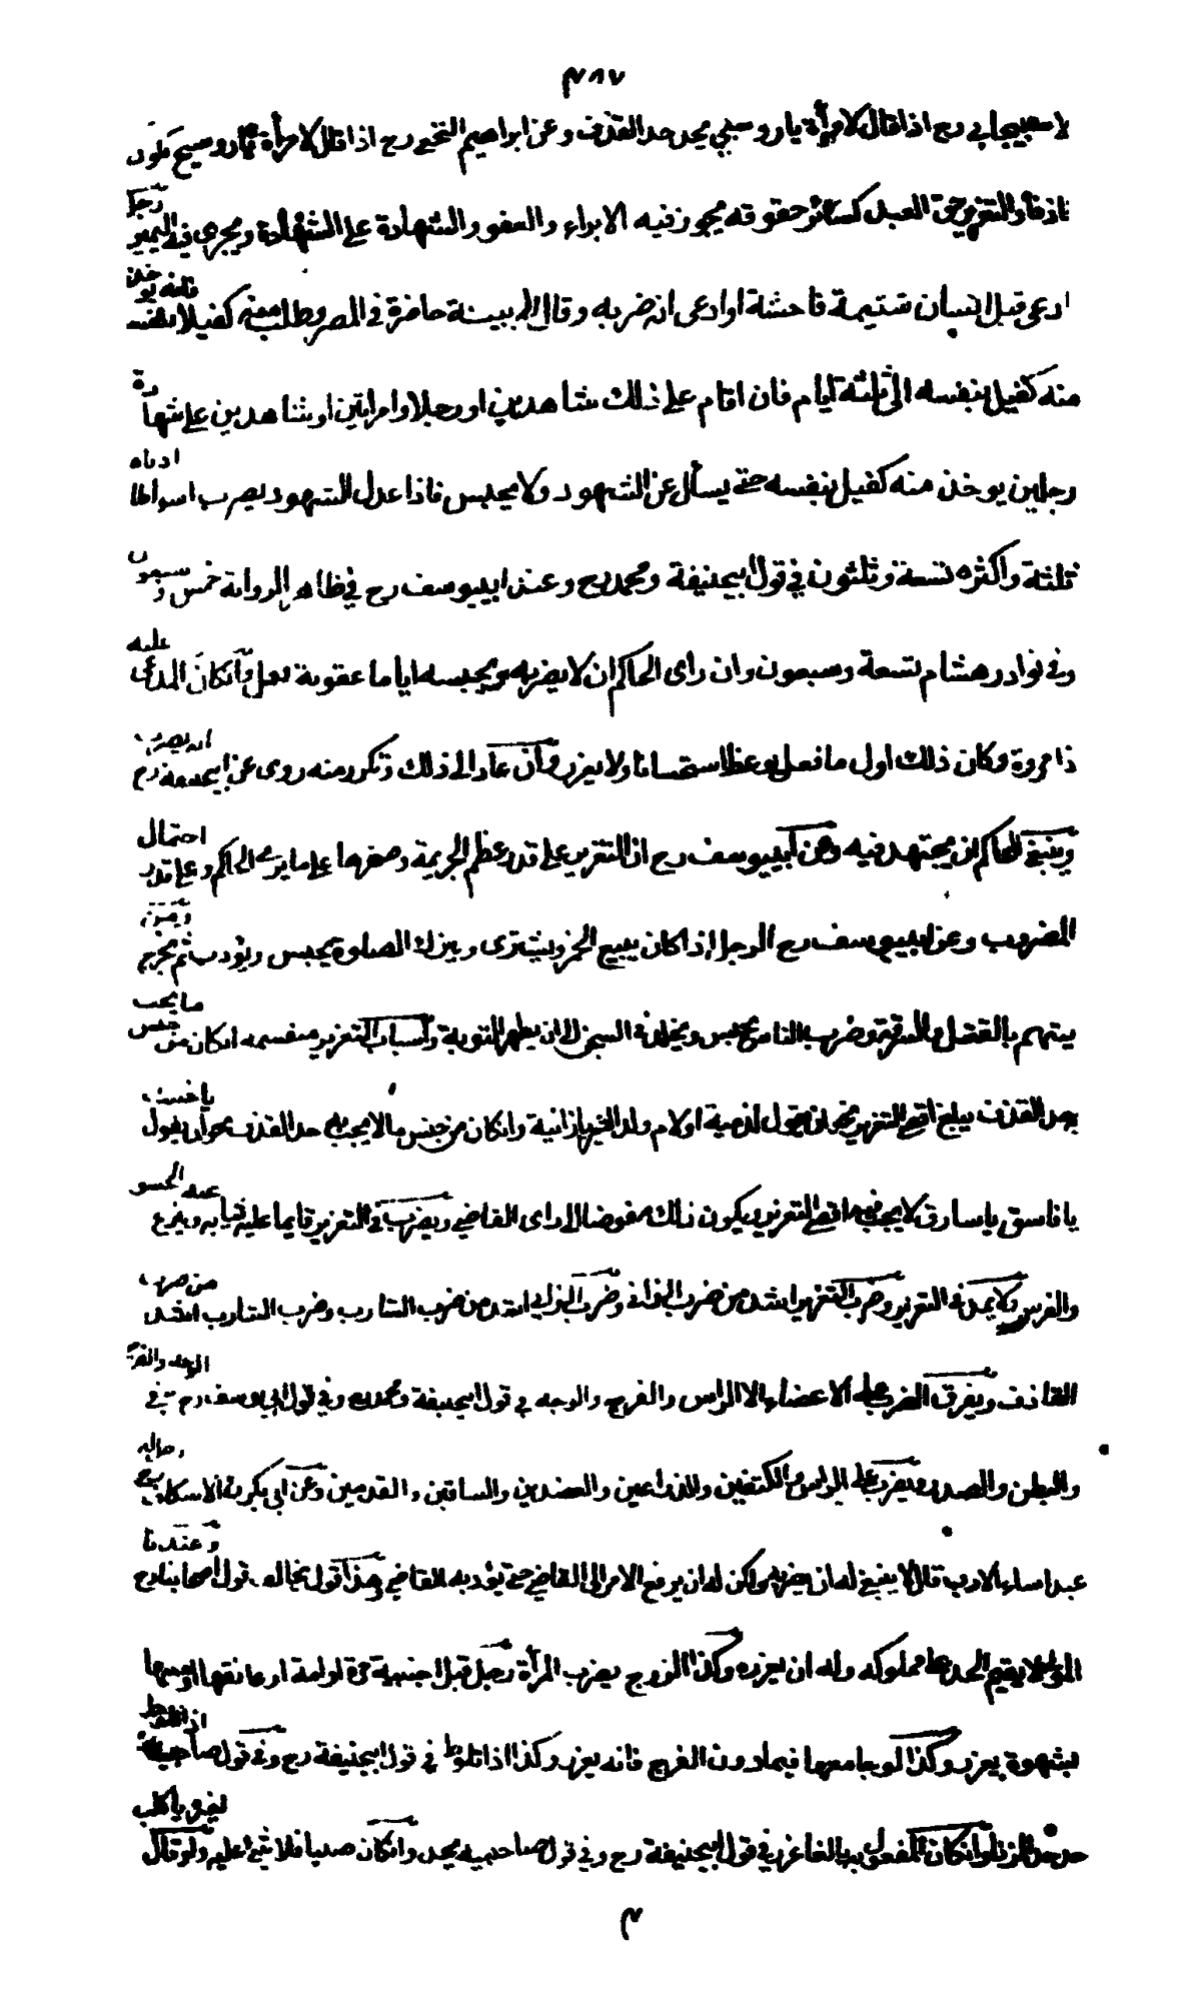 ٣٨٧
لاسبيجابي رح اذا قال لامرأة ياروسبي يحد حد القذف وعن ابراهيم النخعي رح اذا قال لامرأة ياروسبيح يكون
قاذفا والتعزير حق العبد كسائر حقوقه يجوز فيه الابراء والعفو والشهادة على الشهادة ويجري فيه اليمين رجل
ادعى قبل انسان شتيمة فاحشة او ادعى انه ضربه وقال لي بينة حاضرة في المصر وطلب منه كفيلا بنفسه فانه يوخذ
منه كفيل بنفسه الى ثلثة ايام فان اقام على ذلك شاهدين او رجلا وامرايتن او شاهدين على شهادة
رجلين يوخذ منه كفيل بنفسه حتى يسأل عن الشهود ولا يحبس فاذا عدل الشهود يضرب اسواطا ادناه
ثلثة واكثره تسعة وثلثون في قول ابيحنيفة ومحمد رح وعند ابيبوسف رح في ظاهر الرواية خمس وسبعون
وفي نوادر هشام تسعة وسبعون وان راى الحاكم ان لا يضربه ويحبسه اياما عقوبة فعل وان كان المدعى عليه
ذا مروة وكان ذلك اول ما فعل يوعظ استحسانا ولا يعزر وان عاد الى ذلك وتكرر منه روى عن ابيحنيفة رح انه يضرب
وينبغي للحاكم ان يجتهد فيه وعن ابييوسف رح ان التعزير على قدر عظم الجريمة وصغرها على ما يرى الحاكم وعلى قدر احتمال
المضروب وعن ابييوسف رح الرجل اذا كان يبيع الخمر ويشترى ويترك الصلوة يحبس ويؤدب ثم يخرج ومن
يتهم بالقتل والسرقة وضرب الناس يحبس ويخلد في السجن الى ان يظهر التوبة واسباب التعزير منقسمة ان كان من جنس ما يجب
به حد القذف يبلغ اقصى التعزير نحو ان يقول لذمية او لام ولد الغير يا زانية وان كان من جنس ما لا يجب به حد القذف نحو ان يقول يا خبيث
يا فاسق يا سارق لا يجب فيه اقصى التعزير ويكون ذلك مفوضا الى راى القاضي ويضرب في التعزير قايما عليه ثيابه وينزع عنه الحشو
والفرو ولا يمد في التعزير وضرب التعزير اشد من ضرب الزاني وضرب الزاني اشد من ضرب الشارب وضرب الشارب اشد من ضرب
القاذف ويفرق الضرب على الاعضاء الا الراس والفرج والوجه في قول ابيحنيفة ومحمد رح وفي قول ابي يوسف رح يتقي الوجه والفرج
والبطن والصدر ويضرب على الراس والكتفين والذراعين والعضدين والساقين والقدمين وعن ابي بكر الاسكاف رح رجل له
عبد اساء الادب قال لا ينبغي له ان يضربه ولكن له ان يرفع الامر الى القاضي حتى يؤدبه القاضي وهذا قول يخالف قول اصحابنا رح وعندنا
المولى لا يقيم الحد على مملوكه وله ان يعزره وكذا الزوج يضرب المرأة رجل قبل اجنبية حرة او امة او عانقها او مسها
بشهوة يعزر وكذا لو جامعها فيما دون الفرج فانه يعزر وكذا اذا تلوط في قول ابيحنيفة رح وفي قول صاحبيه اذا تلوط
حد حد الزنا وان كان المفعول به بالغا عزر في قول ابيحنيفة رح وفي قول صاحبيه يحد وان كان صبيا فلا شئ عليه ولو قال لغيره يا كلب